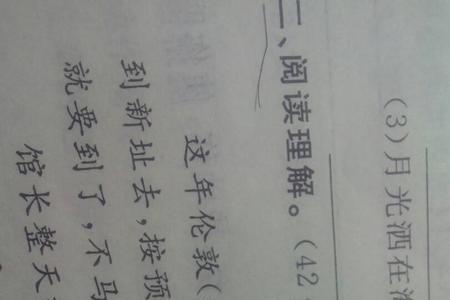 (3)月光洒在
二、阅读理解。(42
这年伦敦(
到新址去,按预
就要到了,不马
馆长整天